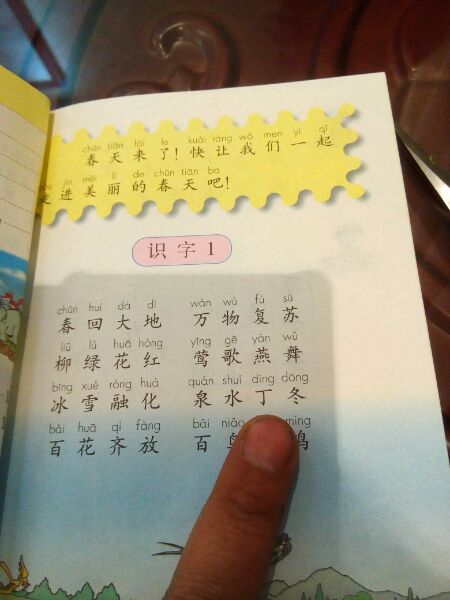 chūn tiān lái le kuài ràng wǒ men yì qǐ
春天来了!快让我们一起
jìn měi lì de chūn tiān ba
进美丽的春天吧!
识字1
chūn huí dà dì wàn wù fù sū
春回大地 万物复苏
liǔ lǜ huā hóng yīng gē yàn wǔ
柳绿花红 莺歌燕舞
bīng xuě róng huà quán shuǐ dīng dōng
冰雪融化 泉水丁冬
bǎi huā qí fàng bǎi niǎo míng
百花齐放 百鸟鸣